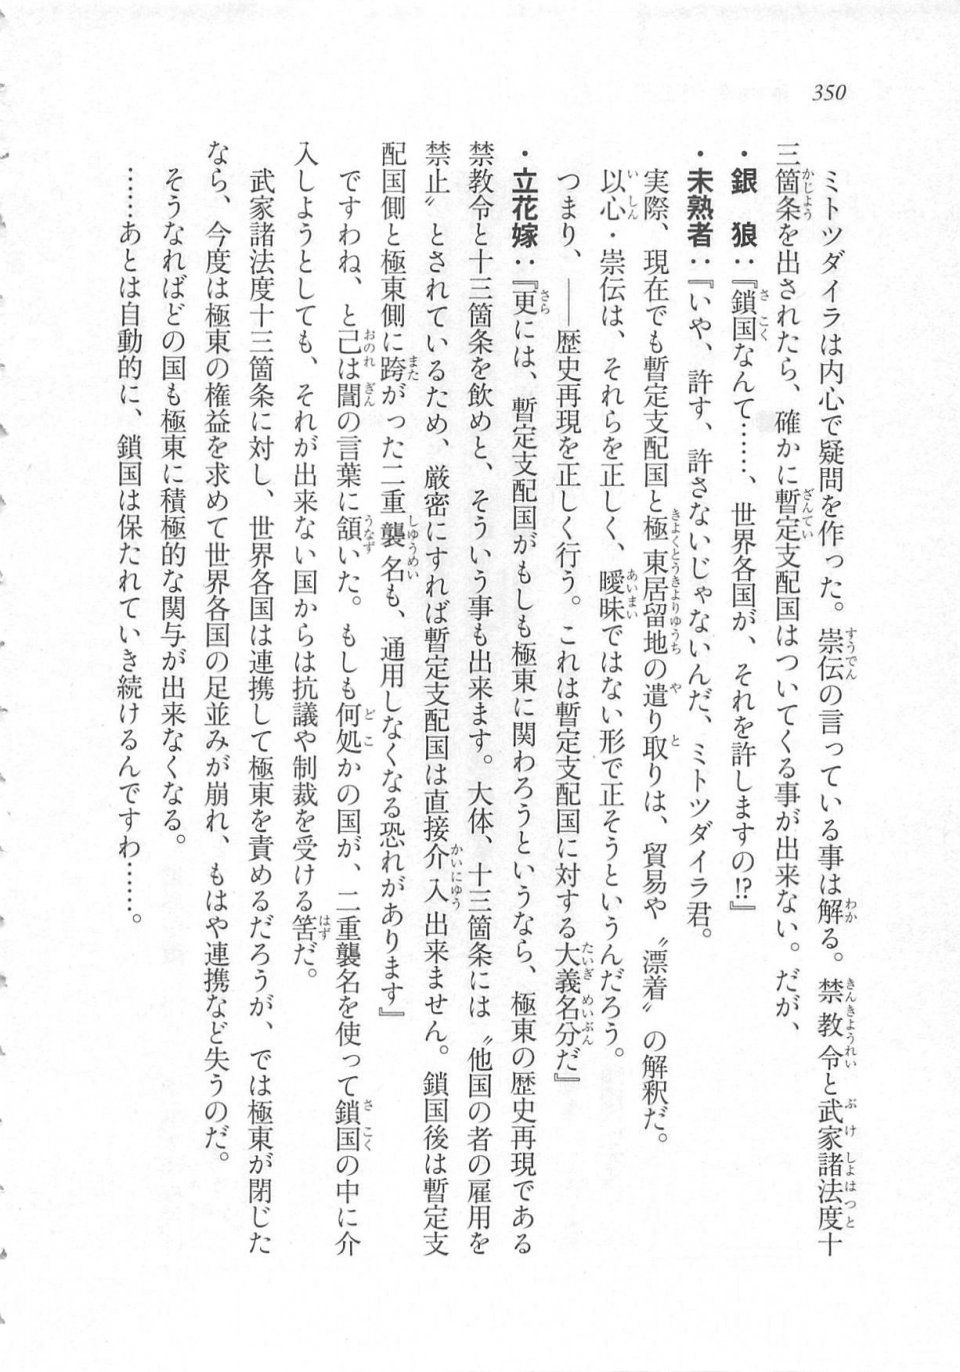 350
ミトツダイラは内心で疑問を作った。崇伝の言っている事は解る。禁教令と武家諸法度十
三箇条を出されたら、確かに暫定支配国はついてくる事が出来ない。だが、
・銀　狼：『鎖国なんて……、世界各国が、それを許しますの!?』
・未熟者：『いや、許す、許さないじゃないんだ、ミトツダイラ君。
実際、現在でも暫定支配国と極東居留地の遣り取りは、貿易や〝漂着〟の解釈だ。
以心・崇伝は、それらを正しく、曖昧ではない形で正そうというんだろう。
つまり、――歴史再現を正しく行う。これは暫定支配国に対する大義名分だ』
・立花嫁：『更には、暫定支配国がもしも極東に関わろうというなら、極東の歴史再現である
禁教令と十三箇条を飲めと、そういう事も出来ます。大体、十三箇条には〝他国の者の雇用を
禁止〟とされているため、厳密にすれば暫定支配国は直接介入出来ません。鎖国後は暫定支
配国側と極東側に跨がった二重襲名も、通用しなくなる恐れがあります』
ですわね、と己は誾の言葉に頷いた。もしも何処かの国が、二重襲名を使って鎖国の中に介
入しようとしても、それが出来ない国からは抗議や制裁を受ける筈だ。
武家諸法度十三箇条に対し、世界各国は連携して極東を責めるだろうが、では極東が閉じた
なら、今度は極東の権益を求めて世界各国の足並みが崩れ、もはや連携など失うのだ。
そうなればどの国も極東に積極的な関与が出来なくなる。
……あとは自動的に、鎖国は保たれていき続けるんですわ……。